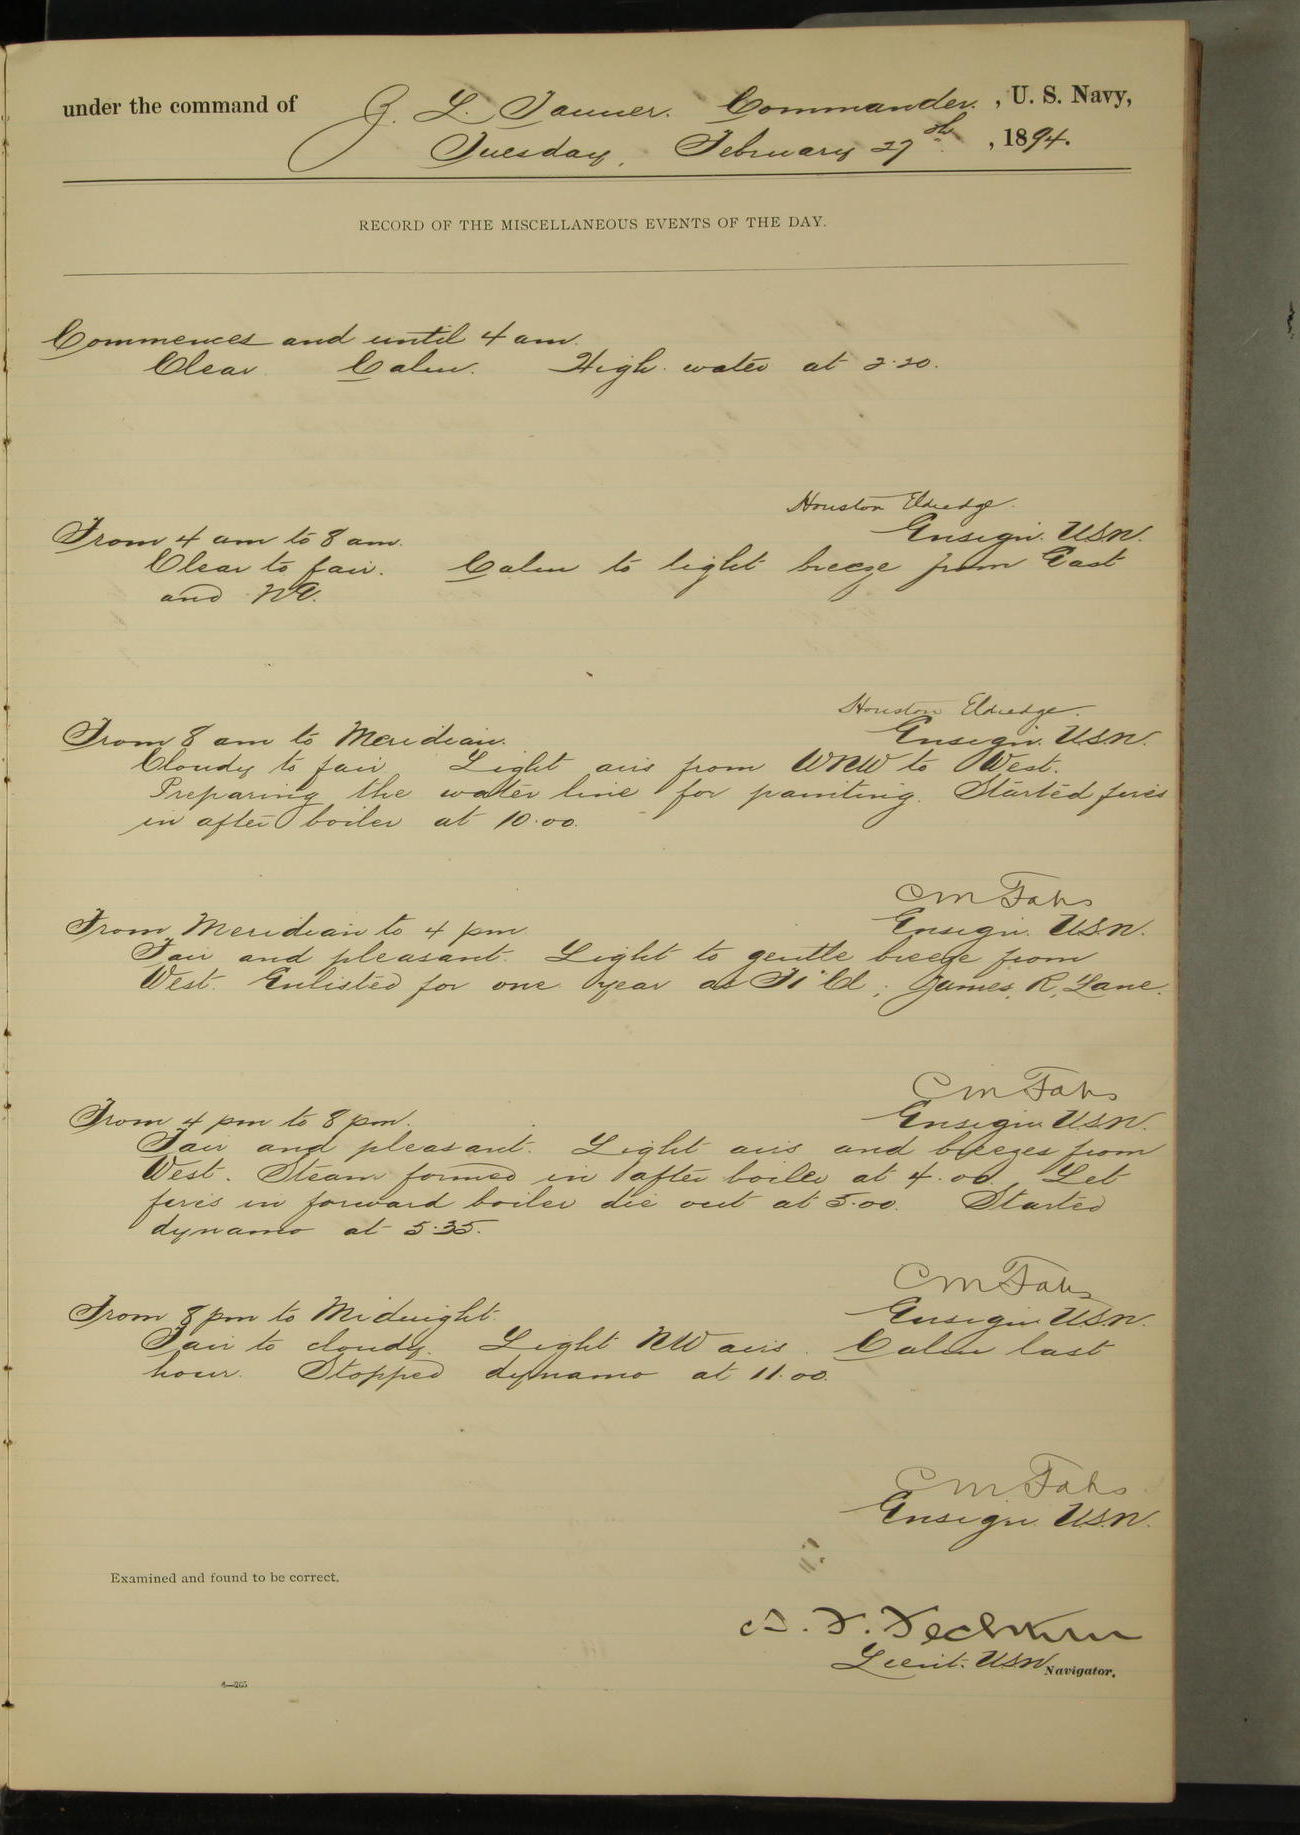 under the command of Z. L. Tanner. Commander. , U. S. Navy,
Tuesday, February 27th , 1894.
RECORD OF THE MISCELLANEOUS EVENTS OF THE DAY.
Commences and until 4 am.
Clear Calm. High water at 2.20.
Houston Eldredge.
Ensign. USN.
From 4 am to 8 am.
Clear to fair. Calm to light breeze from East
and NE.
Houston Eldredge.
Ensign. USN.
From 8 am to Meridian.
Cloudy to fair Light airs from WNW to West.
Preparing the water line for painting. Started fires
in after boiler at 10.00.
CM Fahs
Ensign. USN.
From Meridian to 4 pm
Fair and pleasant. Light to gentle breeze from
West. Enlisted for one year as James R. Lane.
CM Fahs
Ensign USN.
From 4 pm to 8 pm.
Fair and pleasant. Light airs and breezes from
West. Steam formed in after boiler at 4.00. Let
fires in forward boiler die out at 5.00. Started
dynamo at 5.35.
CM Fahs
Ensign USN.
From 8 pm to Midnight.
Fair to cloudy. Light NW airs. Calm last
hour. Stopped dynamo at 11.00.
CM Fahs
Ensign. USN.
Examined and found to be correct.
Lieut. USN Navigator.
4—265